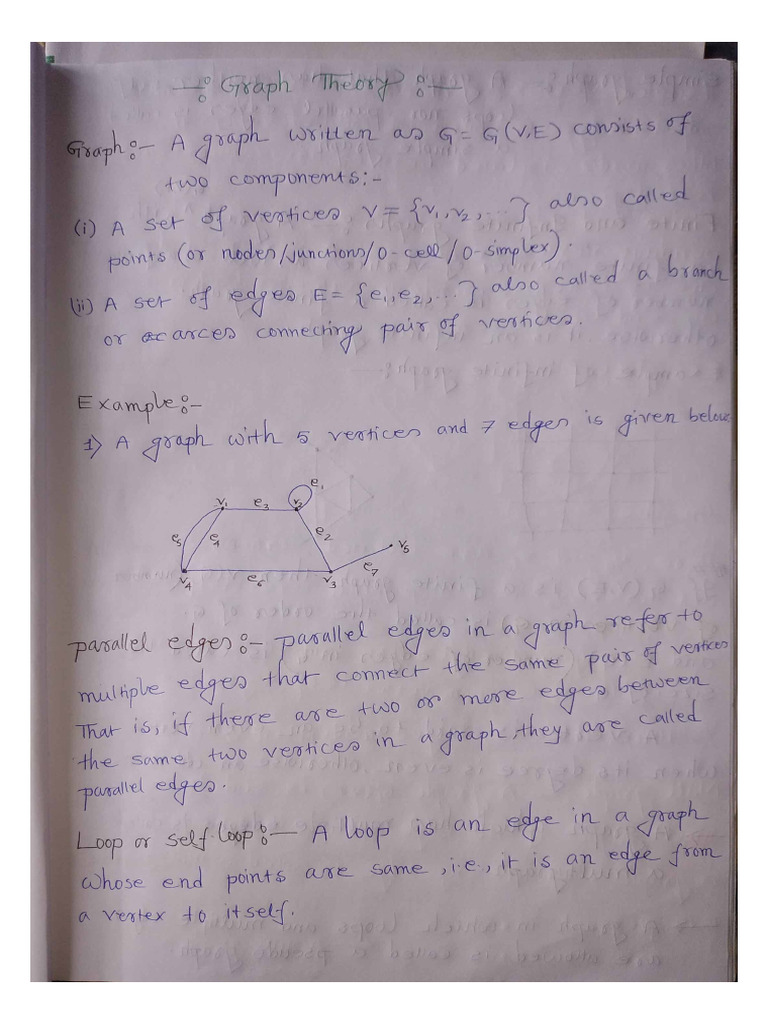 —: Graph Theory :—
Graph:- A graph written as G = G(V,E) consists of
two components:-
(i) A set of vertices V = {v1, v2, ...} also called
points (or nodes/junctions/0-cell/0-simplex).
(ii) A set of edges E = {e1, e2, ...} also called a branch
or arces connecting pair of vertices.
Example:-
1) A graph with 5 vertices and 7 edges is given below
e1
v1 e3 v2
e5 e4 e2 v5
v4 e6 v3 e7
parallel edges:- parallel edges in a graph refer to
multiple edges that connect the same pair of vertices
That is, if there are two or more edges between
the same two vertices in a graph, they are called
parallel edges.
Loop or self loop:- A loop is an edge in a graph
whose end points are same, i.e., it is an edge from
a vertex to itself.